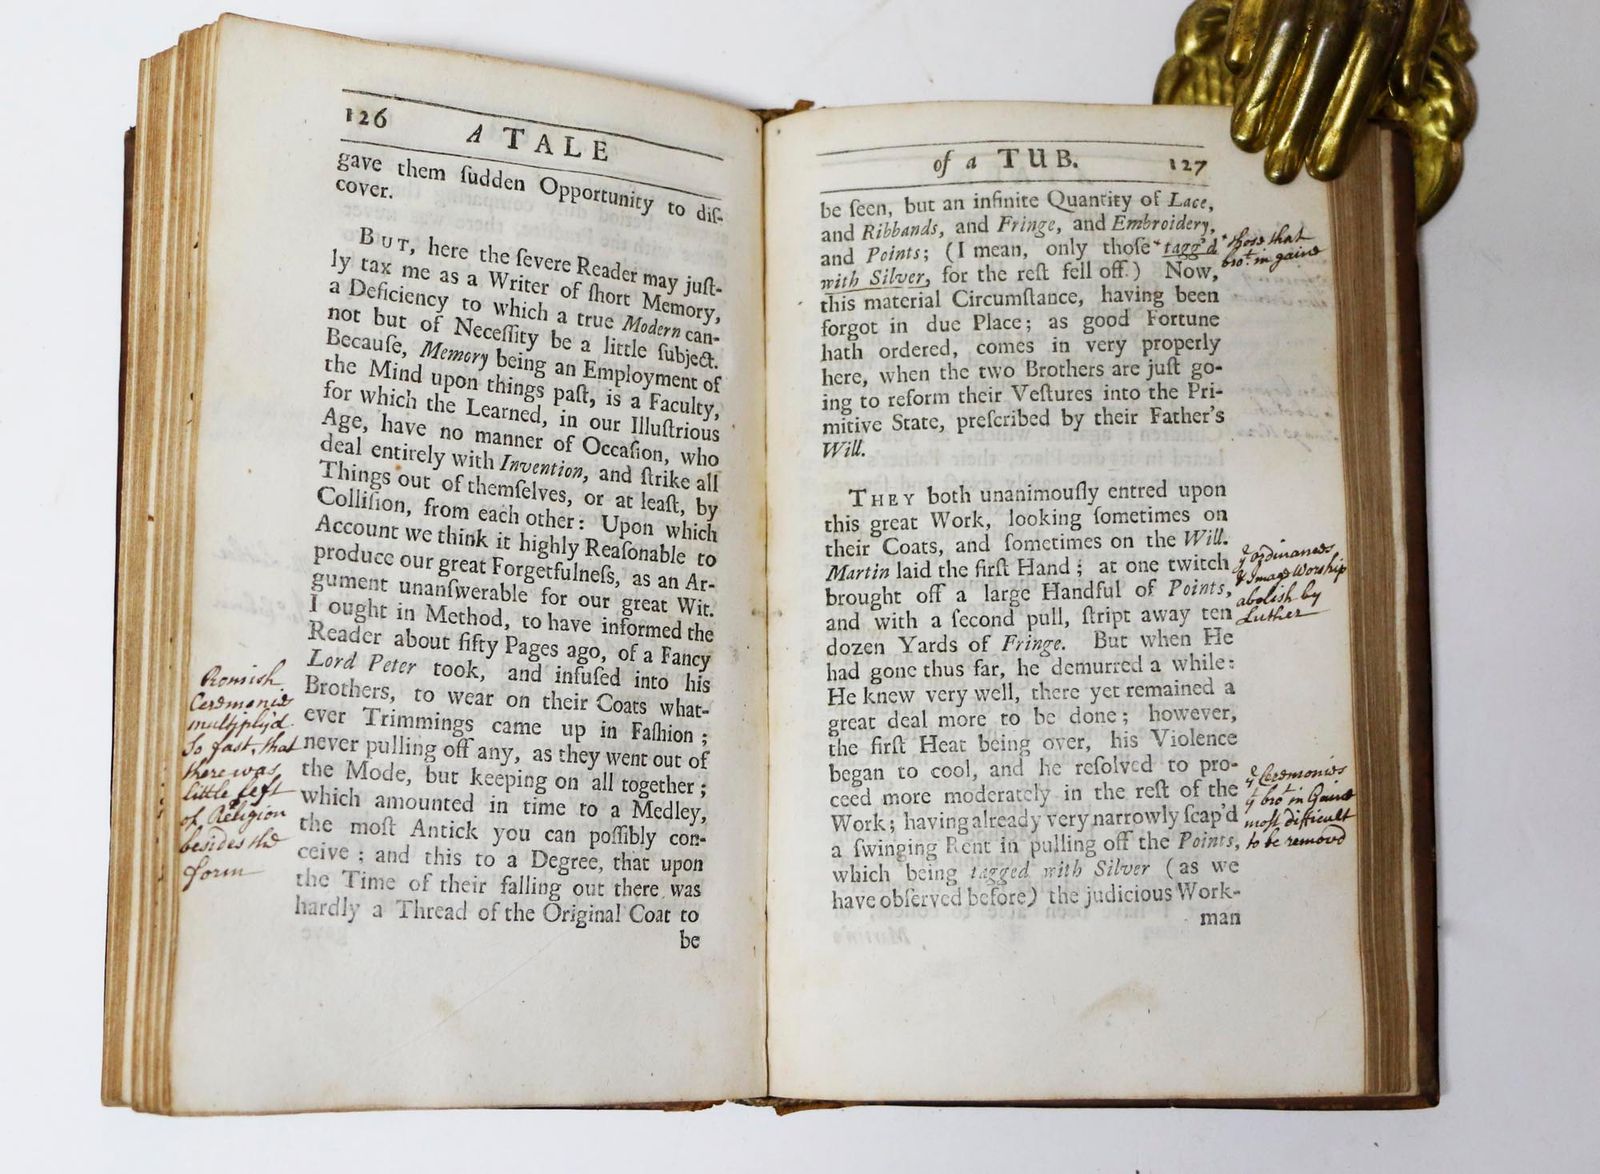 126
A TALE
gave them ſudden Opportunity to diſ-
cover.
BUT, here the ſevere Reader may juſt-
ly tax me as a Writer of ſhort Memory,
a Deficiency to which a true Modern can-
not but of Neceſſity be a little ſubject.
Becauſe, Memory being an Employment of
the Mind upon things paſt, is a Faculty,
for which the Learned, in our Illuſtrious
Age, have no manner of Occaſion, who
deal entirely with Invention, and ſtrike all
Things out of themſelves, or at leaſt, by
Colliſion, from each other: Upon which
Account we think it highly Reaſonable to
produce our great Forgetfulneſs, as an Ar-
gument unanſwerable for our great Wit.
I ought in Method, to have informed the
Reader about fifty Pages ago, of a Fancy
Lord Peter took, and infuſed into his
Brothers, to wear on their Coats what-
ever Trimmings came up in Faſhion;
never pulling off any, as they went out of
the Mode, but keeping on all together;
which amounted in time to a Medley,
the moſt Antick you can poſſibly con-
ceive; and this to a Degree, that upon
the Time of their falling out there was
hardly a Thread of the Original Coat to
be
Romish
Ceremonies
multiply'd
So fast, that
there was
little left
of Religion
besides the
form
of a TUB.
127
be ſeen, but an infinite Quantity of Lace,
and Ribbands, and Fringe, and Embroidery,
and Points; (I mean, only thoſe * tagg'd
with Silver, for the reſt fell off.) Now,
this material Circumſtance, having been
forgot in due Place; as good Fortune
hath ordered, comes in very properly
here, when the two Brothers are juſt go-
ing to reform their Veſtures into the Pri-
mitive State, preſcribed by their Father's
Will.
THEY both unanimouſly entred upon
this great Work, looking ſometimes on
their Coats, and ſometimes on the Will.
Martin laid the firſt Hand; at one twitch
brought off a large Handful of Points,
and with a ſecond pull, ſtript away ten
dozen Yards of Fringe. But when He
had gone thus far, he demurred a while:
He knew very well, there yet remained a
great deal more to be done; however,
the firſt Heat being over, his Violence
began to cool, and he reſolved to pro-
ceed more moderately in the reſt of the
Work; having already very narrowly ſcap'd
a ſwinging Rent in pulling off the Points,
which being tagged with Silver (as we
have obſerved before) the judicious Work-
man
* those that
bro.t in gaine
ye ordinances
& Image Worship
abolish by
Luther
ye Ceremonies
yt bro.t in Gaine
most difficult
to be removd